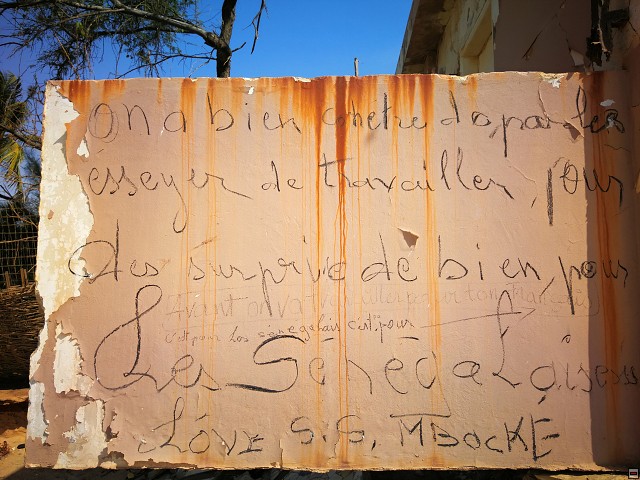 On a bien
esseyer de travailler, pour
des surprise de bien pour
avant on va travailler pour ton
c'est pour Les senegalais c'est pour
Les Sénégalaisesu
Love S.S, MBOCKE